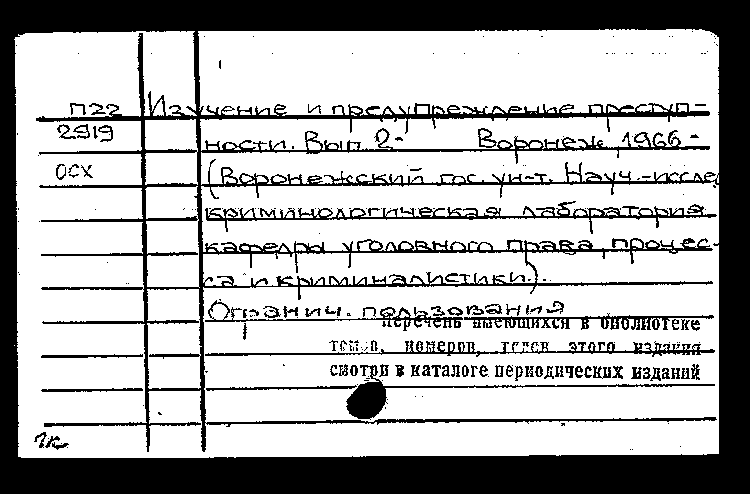 П22 Изучение и предупреждение преступ-
2919 ности. Вып. 2- Воронеж, 1966-
осх (Воронежский гос. ун-т. Науч.-исслед
криминологическая лаборатория
кафедры уголовного права, процес-
са и криминалистики).
Огранич. пользования
Перечень имеющихся в библиотеке
томов, номеров, годов этого издания
смотри в каталоге периодических изданий